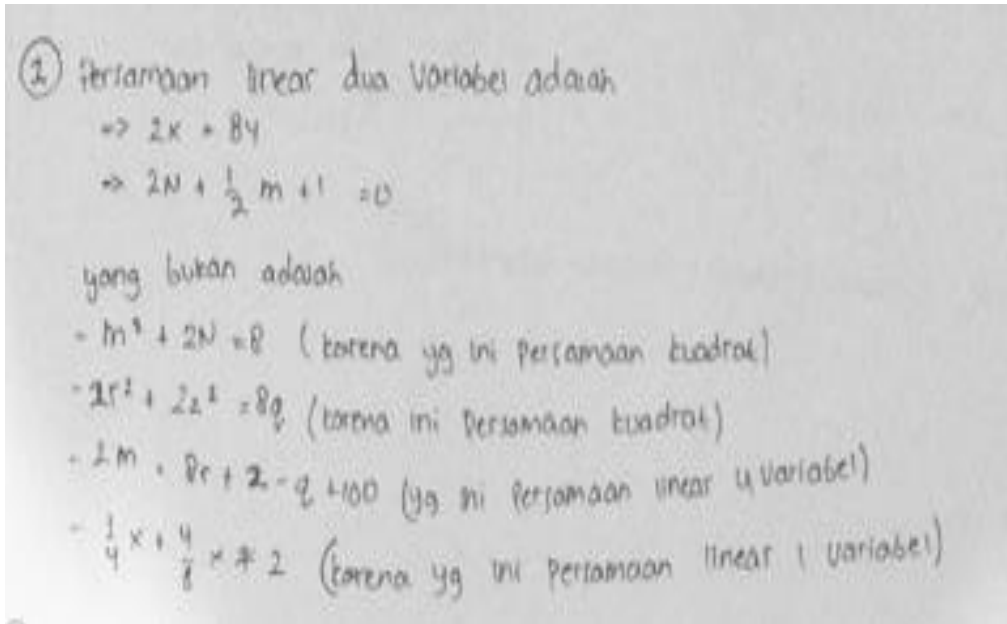 ① Persamaan linear dua variabel adalah
=> 2x = 8y
=> 2N + 1/2 m + 1 = 0
yang bukan adalah
- m² + 2N = 8 (karena yg ini persamaan kuadrat)
- 2r² + 2z² = 8q (karena ini persamaan kuadrat)
- 2m 8r + 2 - q +100 (yg ini persamaan linear 4 variabel)
- 1/4 x + 4/8 x 2 (karena yg ini persamaan linear 1 variabel)